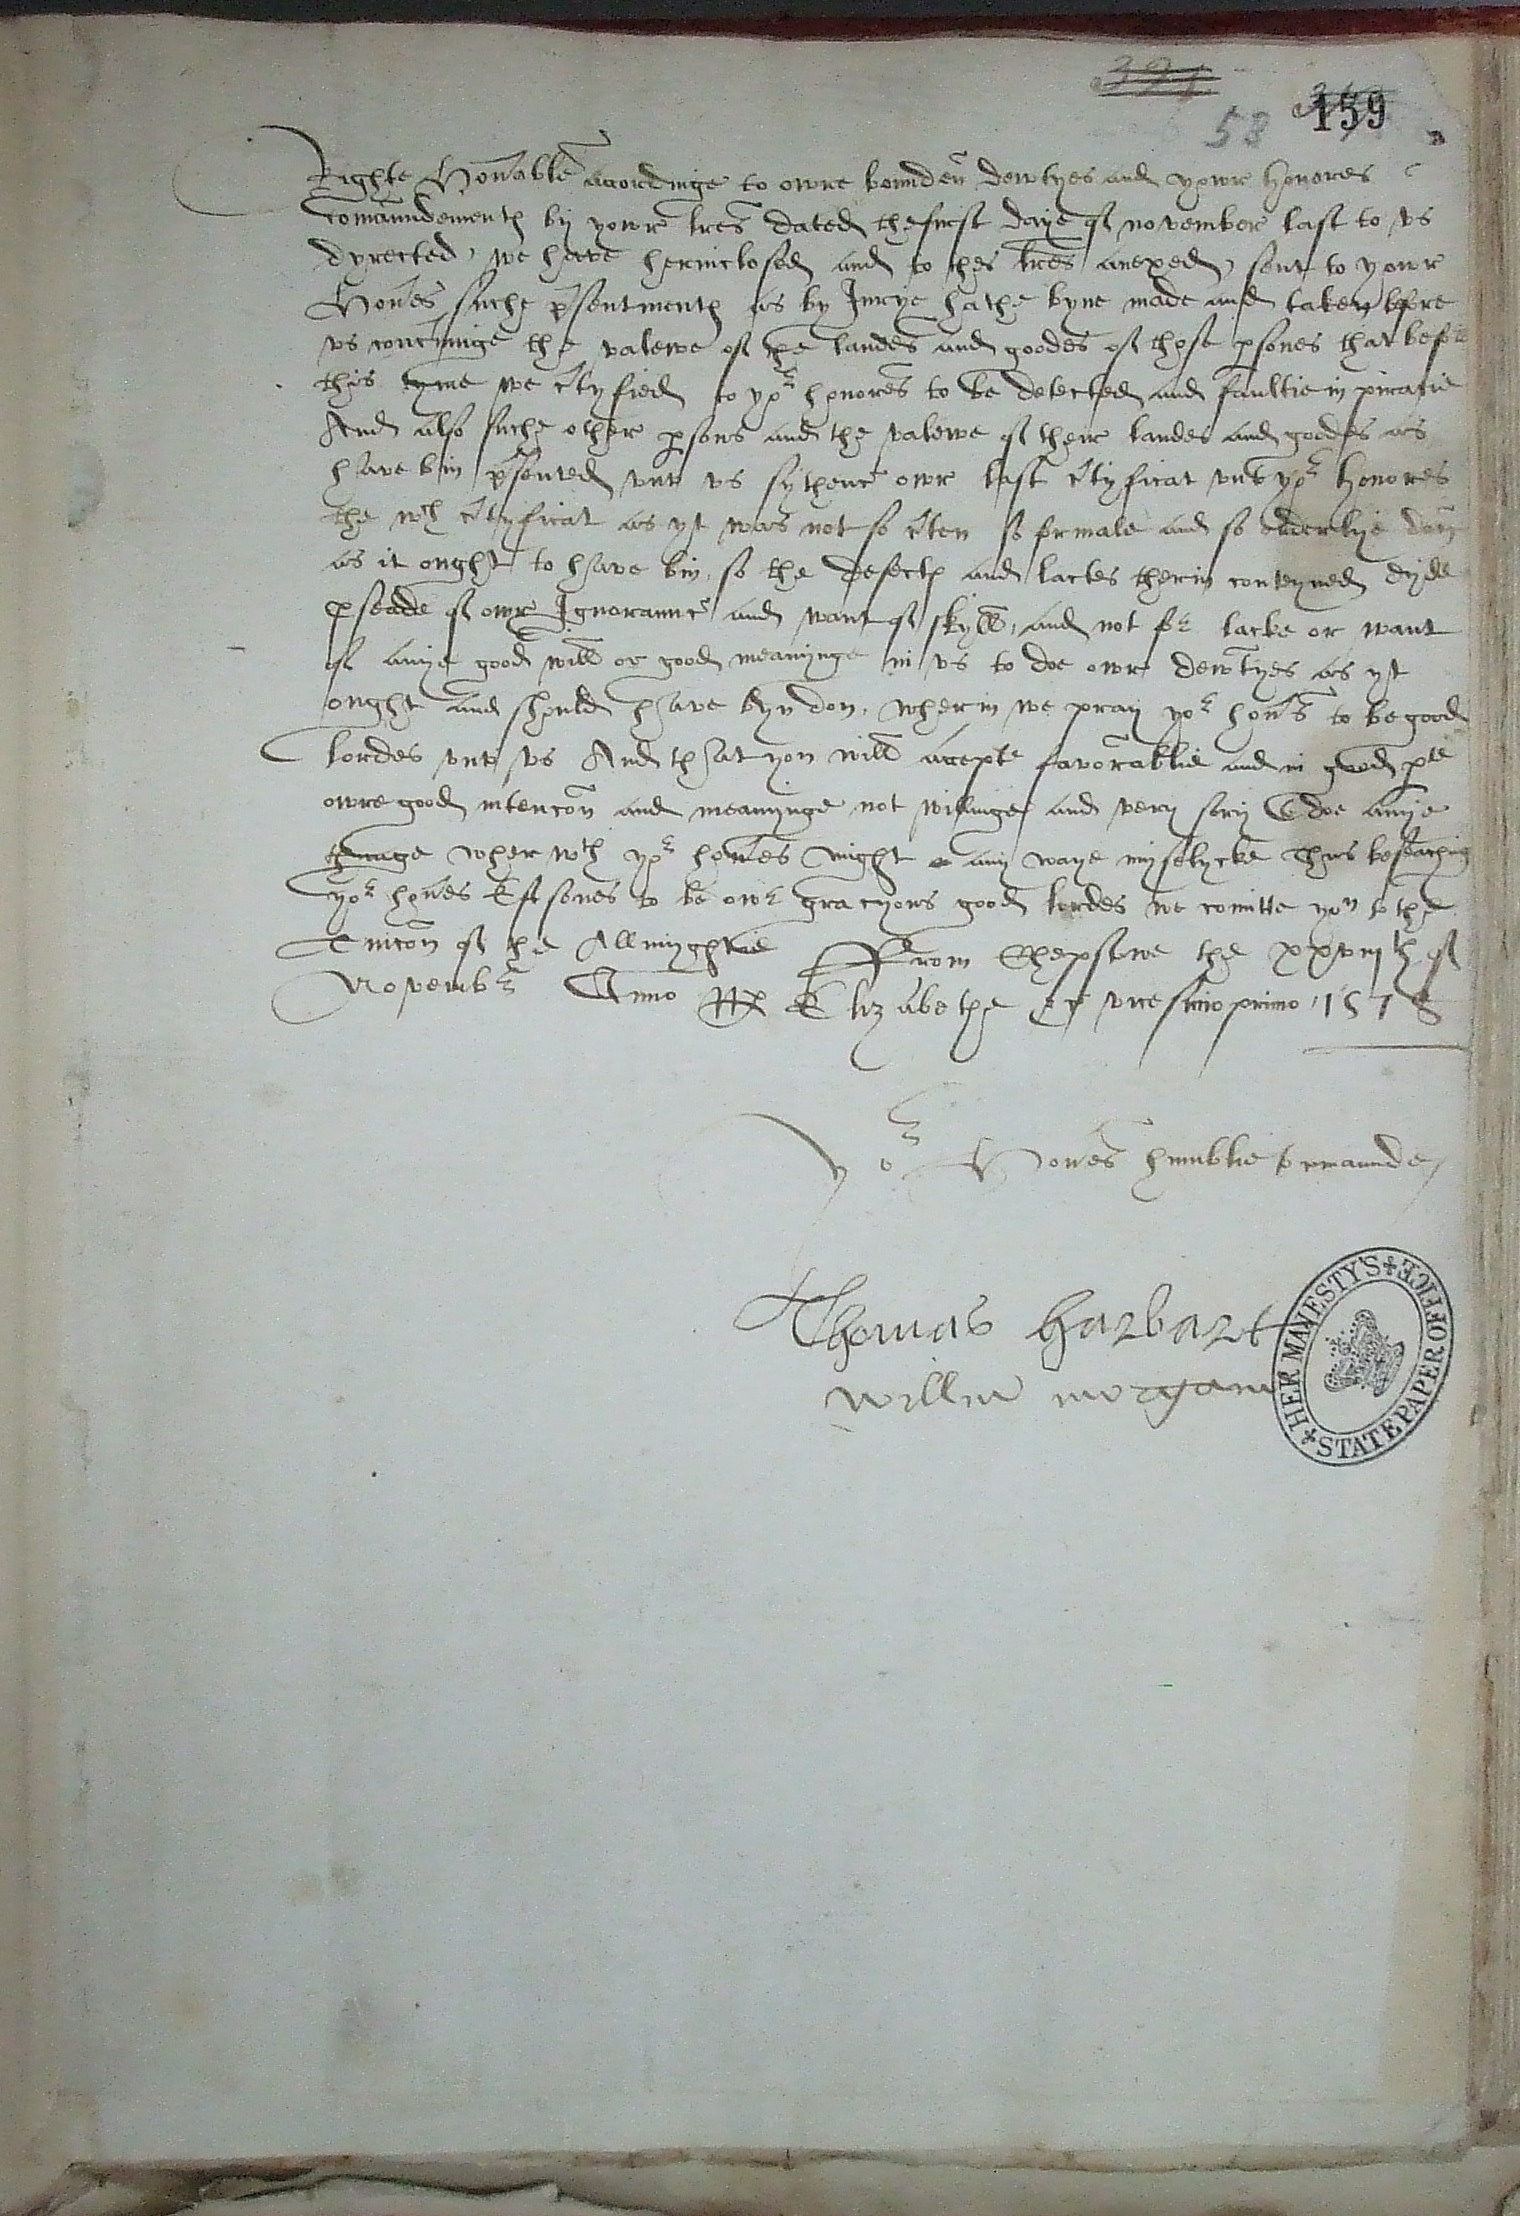 391
58 159
Righte Honable acordinge to owre bounden dewtyes and yowr honores
comaundementes by yowr lres dated the first daye of november last to us
dyrected, we have herinclosed and to thes lres anexed, sent to yowr
Hones suche psentmentes as by Jurye hathe byne made and taken before
us concninge the valewe of the landes and goodes of those psones that before
this tyme we ctyfied to yor honores to be detected and faultie in piracie
And also suche other psons and the valewe of their landes and goodes as
have bin psented unto us sythence owr last ctyficat unto yor honores
the wch ctyficat as yt was not so cten so formale and so orderlye don
as it ought to have bin, so the defectes and lackes therin conteyned dyde
pseade of owr Ignoraunce and want of skyll, and not for lacke or want
of anye good will or good meanynge in us to doe owr dewtyes as yt
ought and should have byn don, wherin we pray yor hons to be good
lordes unto us And that you will acepte favorablie and in good pte
owre good intencon and meanynge not willinge and very sory to doe anye
thinge wher wth yor hones might any waye myslycke Thus beseaching
yor hones Eftsones to be owr gracyous good lordes we comitte you to the
tuicon of the Allmyghtie From Chepstowe the xxviijth of
Novembr Anno RR Elizabethe &c vicesimo primo, 1578
Yor Hones humblie to comaunde,
Thomas harbart
willm morgan
HER MAJESTY'S STATE PAPER OFFICE